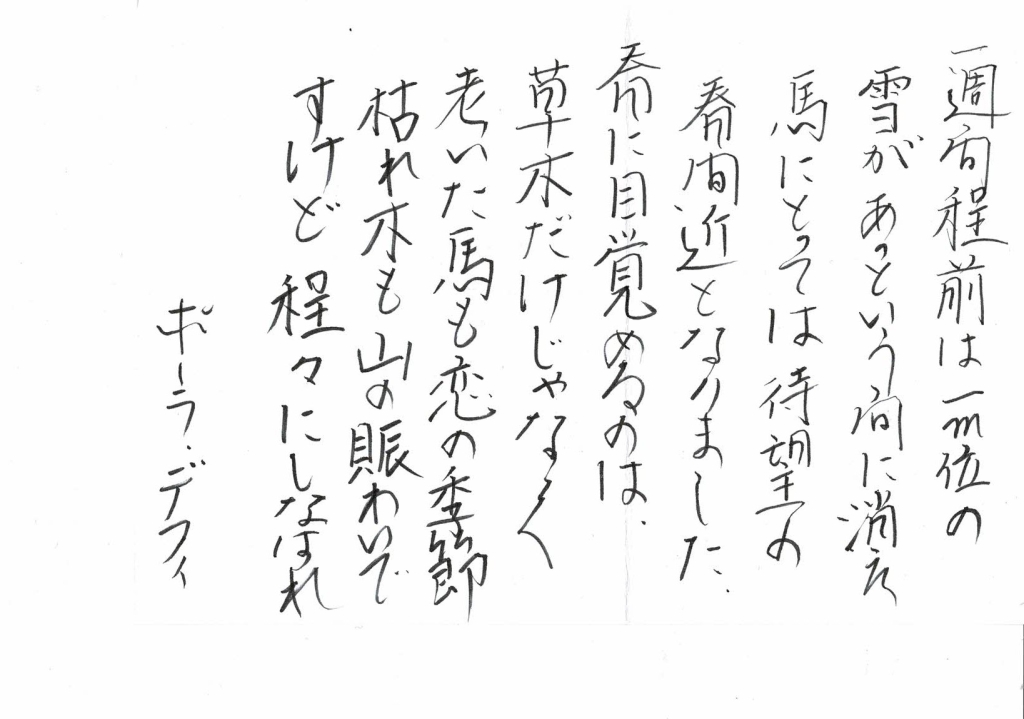 一週間程前は一m位の
雪があっという間に消え
馬にとっては待望の
春間近となりました.
春に目覚めるのは.
草木だけじゃなく
老いた馬も恋の季節
枯れ木も山の賑わいで
すけど程々にしなはれ
ポーラ・デフィ